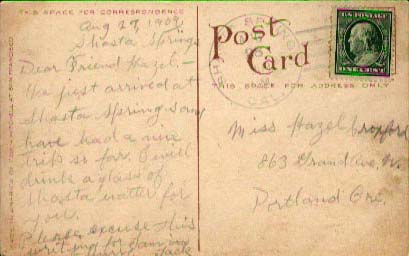 THIS SPACE FOR CORRESPONDENCE
Aug 27, 1909
Shasta Springs
Dear Friend Hazel.—
We just arrived at
Shasta Springs and
have had a nice
trip so far. I will
drink a glass of
Shasta watter for
you.
Please excuse this
writing for I am in
Jack
Post
Card
THIS SPACE FOR ADDRESS ONLY
SHASTA SPRINGS
CAL.
U.S. POSTAGE
ONE CENT
Miss Hazel
863 Grand Ave. N.
Portland Ore.